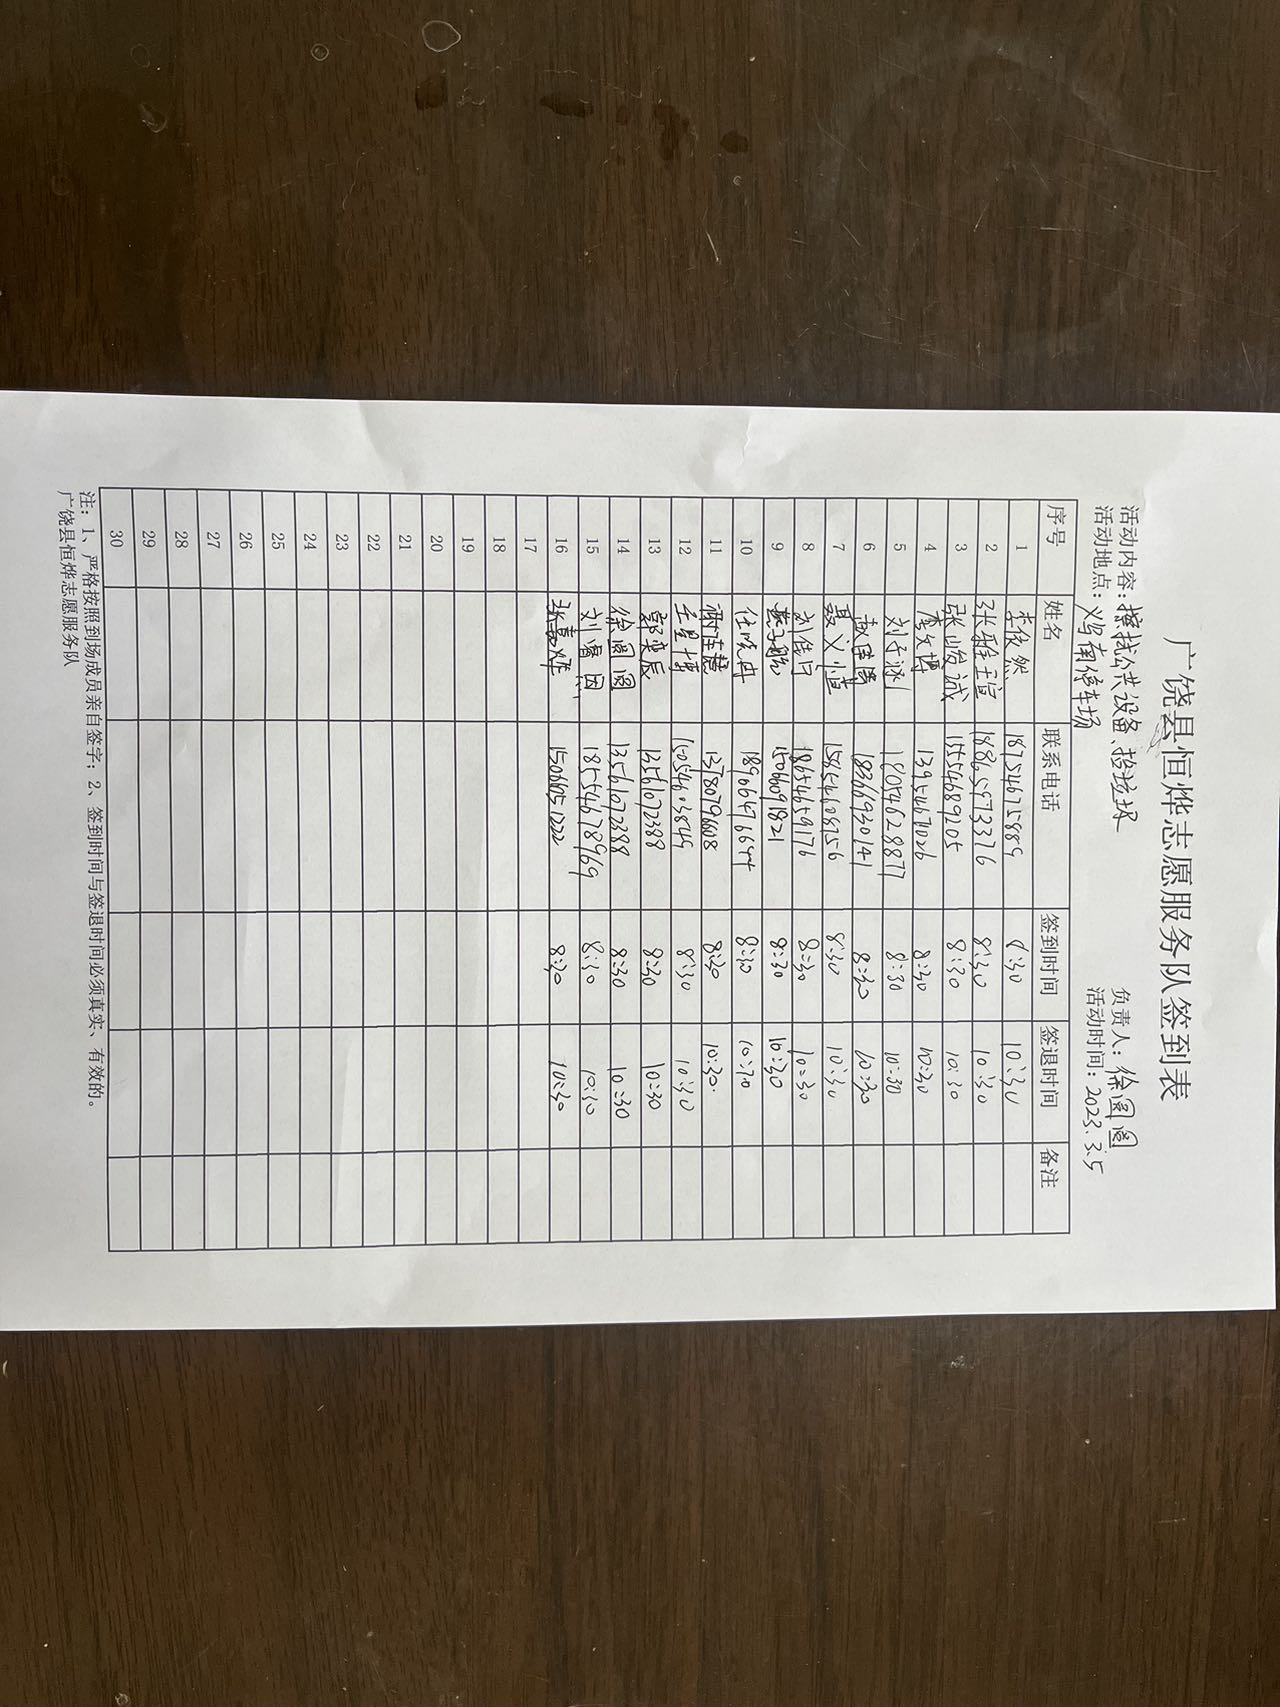 广饶县恒烨志愿服务队签到表
活动内容：擦拭公共设备、拾垃圾 负责人：徐圆圆
活动地点：义乌南停车场 活动时间：2023.3.5
序号 姓名 联系电话 签到时间 签退时间 备注
1 李依然 18754675889 8:30 10:30
2 张雅瑄 18865973376 8:30 10:30
3 张峻诚 15554689105 8:30 10:30
4 李文博 13954671026 8:30 10:30
5 刘子涵 18054628877 8:30 10:30
6 18366930141 8:30 10:30
7 聂义恒 15854608756 8:30 10:30
8 刘佳 18654659176 8:30 10:30
9 15066091821 8:30 10:30
10 任 18906476644 8:30 10:30
11 谢佳慧 13780796608 8:30 10:30
12 王星博 15054603849 8:30 10:30
13 郭奕辰 13561072388 8:30 10:30
14 徐圆圆 13561072388 8:30 10:30
15 刘睿因 18554678969 8:30 10:30
16 张嘉烨 15066051222 8:30 10:30
17
18
19
20
21
22
23
24
25
26
27
28
29
30
注：1、严格按照到场成员亲自签字；2、签到时间与签退时间必须真实、有效的。
广饶县恒烨志愿服务队